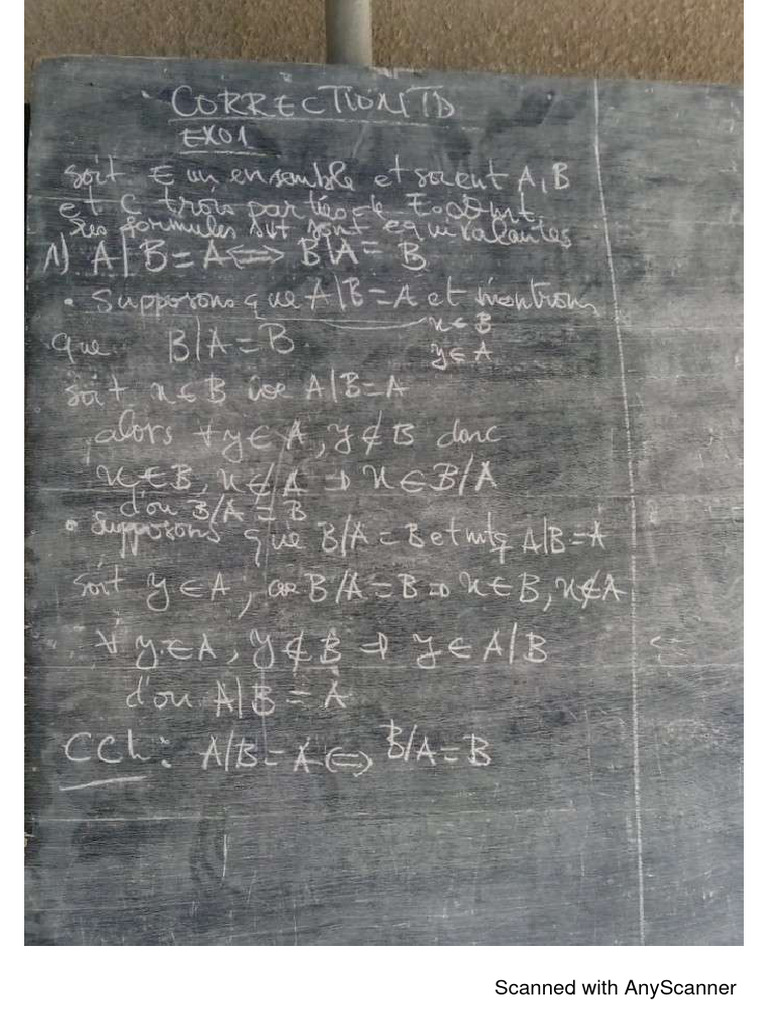 CORRECTION TD
EX01
soit E un ensemble et soient A, B
et C trois parties de E.
les formules svt sont equivalentes
1) A\B = A ⟺ B\A = B
• Supposons que A\B = A et montrons
que B\A = B.
x ∈ B
y ∈ A
soit x ∈ B A\B = A
alors ∀ y ∈ A, y ∉ B donc
x ∈ B, x ∉ A ⇒ x ∈ B/A
d'ou B/A = B
• supposons que B/A = B et mtq A\B = A
soit y ∈ A, B/A = B ⇒ x ∈ B, x ∉ A
∀ y ∈ A, y ∉ B ⇒ y ∈ A\B
d'ou A\B = A
CCL: A/B = A ⟺ B/A = B
Scanned with AnyScanner